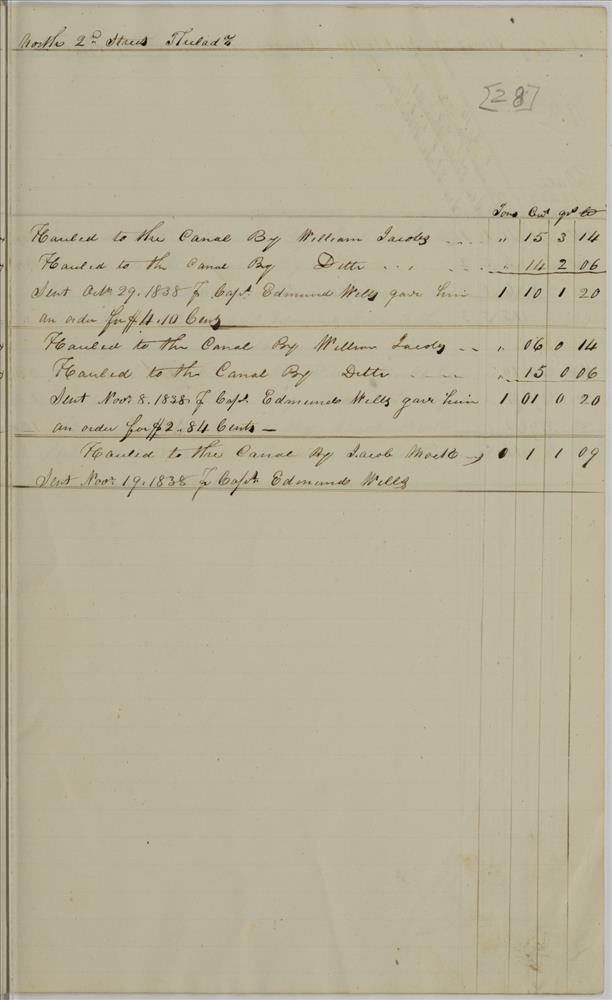 North 2d Street Philada
[28]
Tons Cwt qrs lb
Hauled to the Canal By William Jacobs .... " 15 3 14
Hauled to the Canal By Ditto ... .... " 14 2 06
Sent Octr 29. 1838 p Capt. Edmund Wells gave him 1 10 1 20
an order for $4.10 Cents
Hauled to the Canal By William Jacobs -- " 06 0 14
Hauled to the Canal By Ditto .... " 15 0 06
Sent Novr 8. 1838 p Capt. Edmund Wells gave him 1 01 0 20
an order for $2..84 Cents —
Hauled to the Canal By Jacob 0 1 1 09
Sent Novr 19. 1838 p Capt. Edmund Wells